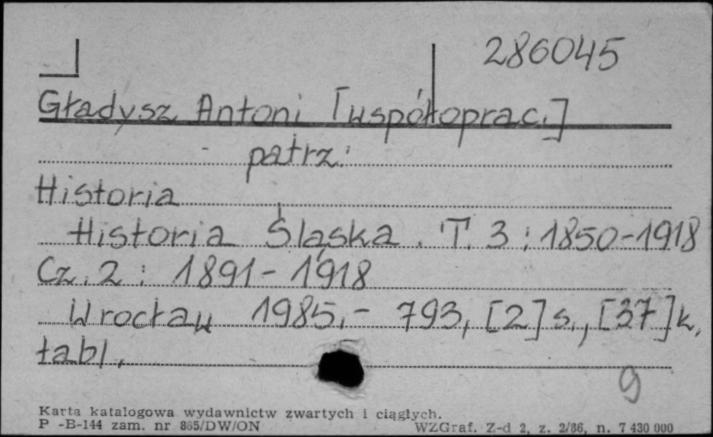 286045
Gładysz Antoni [współoprac.]
patrz:
Historia
Historia Śląska. T. 3 : 1850-1918
Cz. 2 : 1891-1918
Wrocław 1985.- 793, [2] s., [37] k.
tabl.
9
Karta katalogowa wydawnictw zwartych i ciągłych.
P -B-144 zam. nr 865/DW/ON WZGraf. Z-d 2, z. 2/86, n. 7 430 000